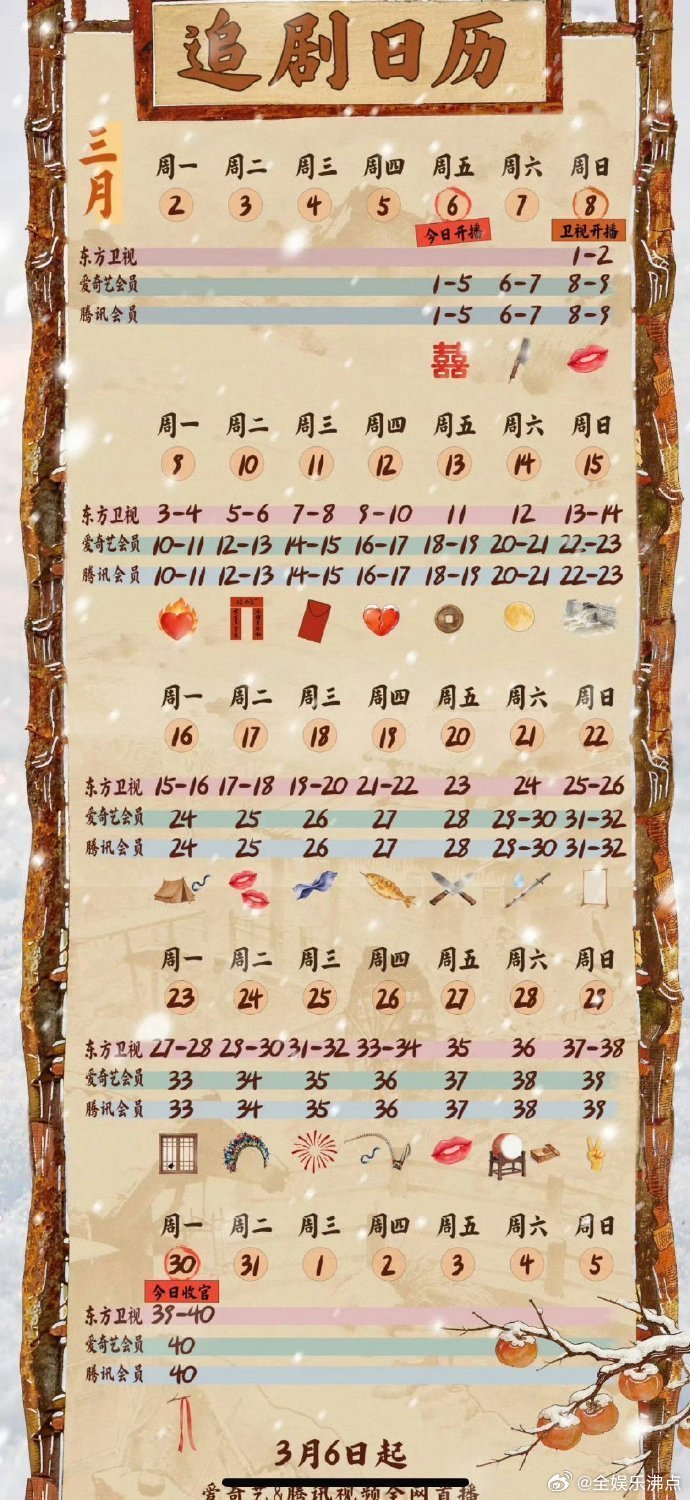 追剧日历
三月
周一 周二 周三 周四 周五 周六 周日
2 3 4 5 6 7 8
今日开播 卫视开播
东方卫视 1-2
爱奇艺会员 1-5 6-7 8-9
腾讯会员 1-5 6-7 8-9
囍
周一 周二 周三 周四 周五 周六 周日
9 10 11 12 13 14 15
东方卫视 3-4 5-6 7-8 9-10 11 12 13-14
爱奇艺会员 10-11 12-13 14-15 16-17 18-19 20-21 22-23
腾讯会员 10-11 12-13 14-15 16-17 18-19 20-21 22-23
周一 周二 周三 周四 周五 周六 周日
16 17 18 19 20 21 22
东方卫视 15-16 17-18 19-20 21-22 23 24 25-26
爱奇艺会员 24 25 26 27 28 29-30 31-32
腾讯会员 24 25 26 27 28 29-30 31-32
周一 周二 周三 周四 周五 周六 周日
23 24 25 26 27 28 29
东方卫视 27-28 29-30 31-32 33-34 35 36 37-38
爱奇艺会员 33 34 35 36 37 38 39
腾讯会员 33 34 35 36 37 38 39
周一 周二 周三 周四 周五 周六 周日
30 31 1 2 3 4 5
今日收官
东方卫视 39-40
爱奇艺会员 40
腾讯会员 40
3月6日起
爱奇艺&腾讯视频全网首播
@全娱乐沸点